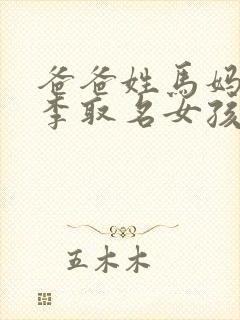 爸爸姓馬妈
李取名女孩
五木木